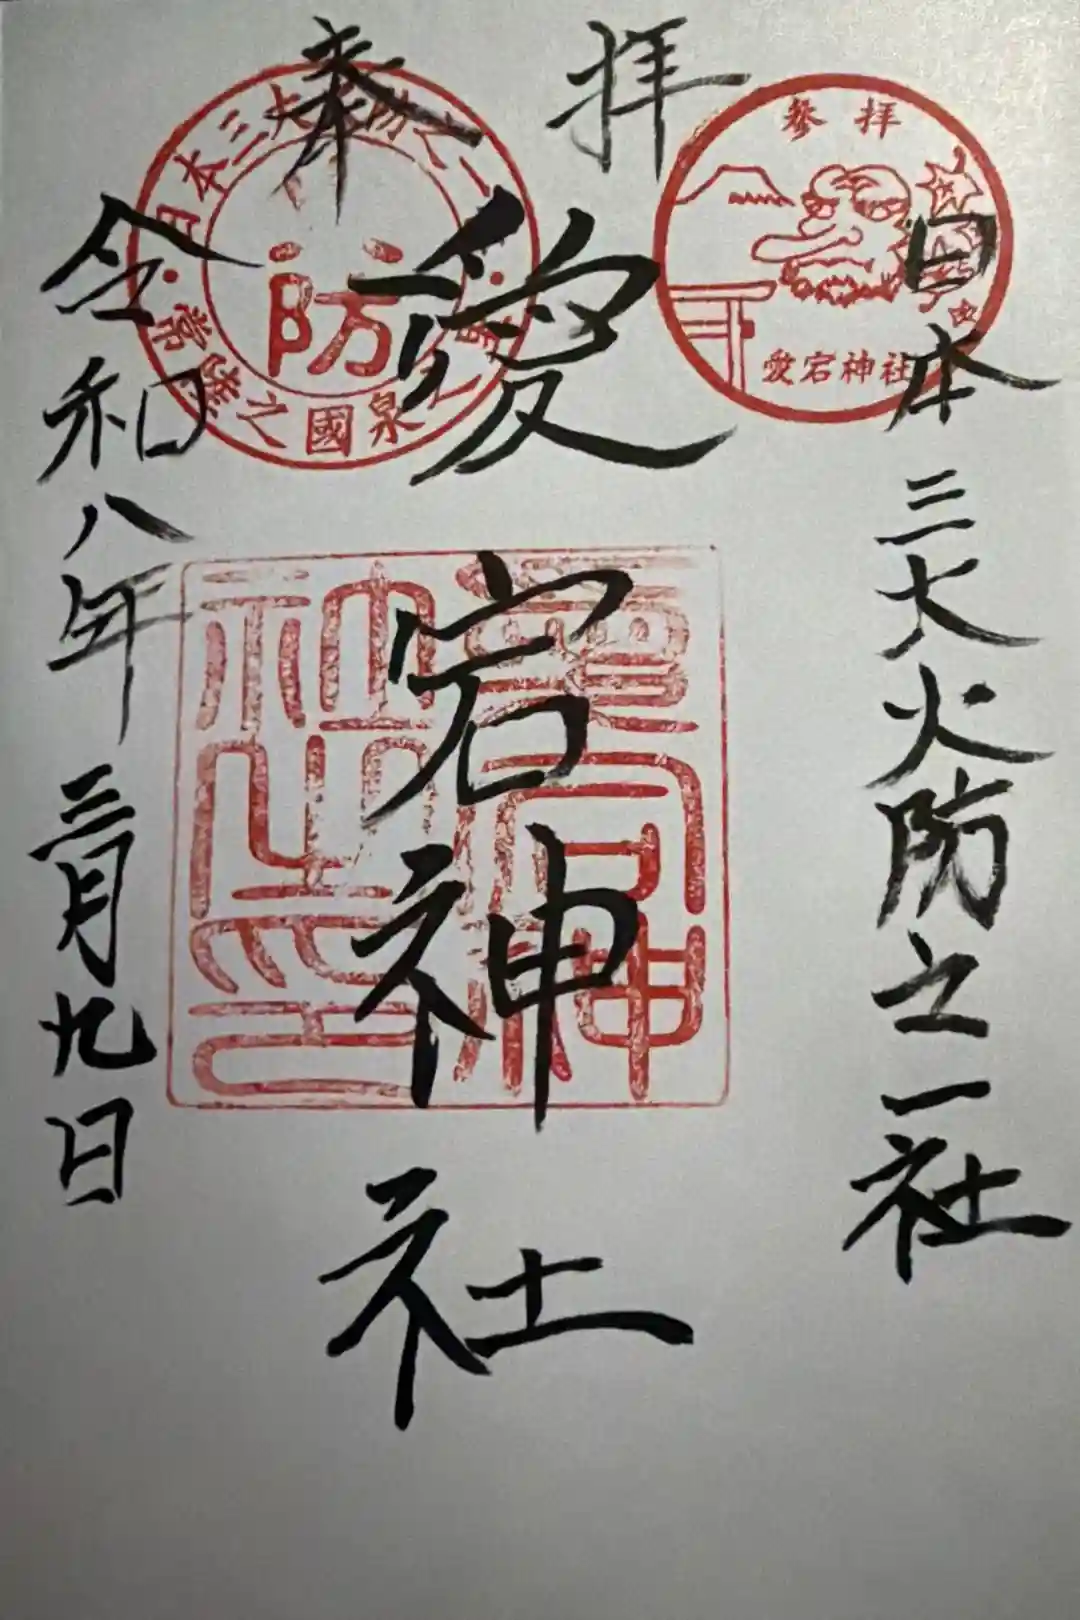 奉拝
日本三大火防之一社
愛宕神社
令和八年三月九日
日本三大火防之一
常陸之國泉
防
参拝
愛宕神社
愛宕神社之印